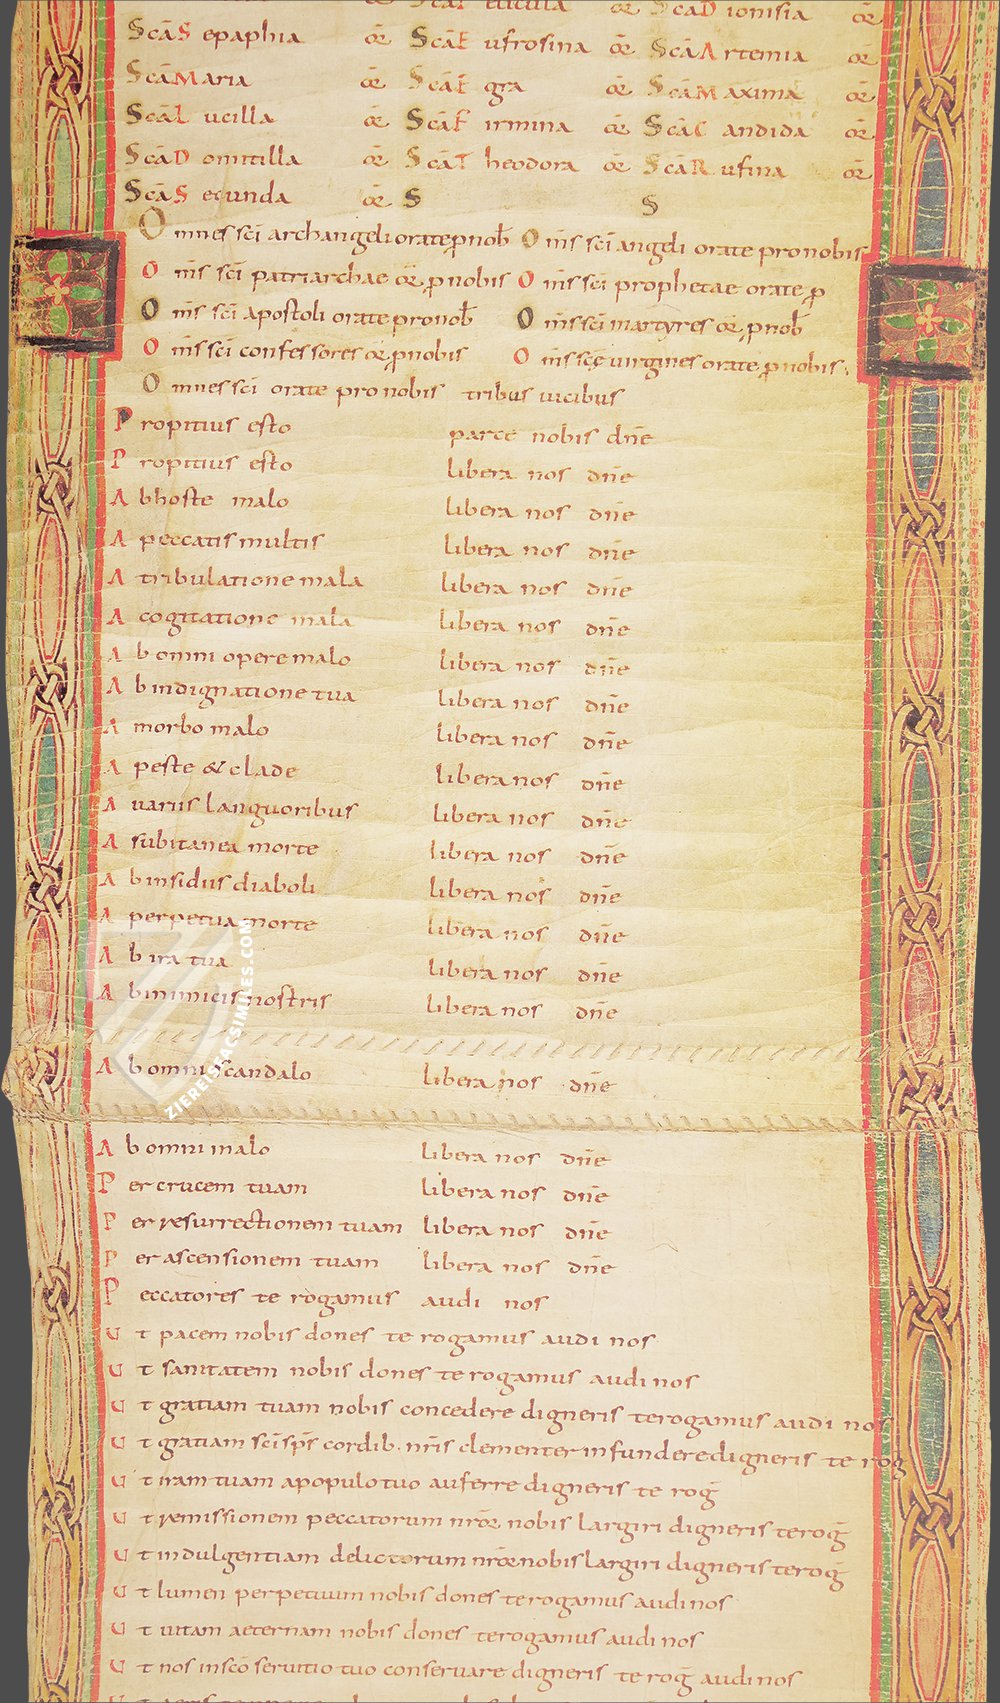 Scā Felicula oř Scā Dionisia oř
Scā Sepaphia oř Scā Eufrosina oř Scā Artemia oř
Scā Maria oř Scā Egra oř Scā Maxima oř
Scā Lucilla oř Scā Firmina oř Scā Candida oř
Scā Domitilla oř Scā Theodora oř Scā Rufina oř
Scā Secunda oř S S
Omnes sc̄i archangeli orate pnob̄ Om̄s sc̄i angeli orate pro nobis
Om̄s sc̄i patriarchae oř p nobis Om̄s sc̄i prophetae orate p
Om̄s sc̄i apostoli orate pro nob̄ Om̄s sc̄i martyres oř p nob̄
Om̄s sc̄i confessores oř p nobis Om̄s sc̄ę virgines orate p nobis.
Omnes sc̄i orate pro nobis tribus vicibus
Propitius esto parce nobis dn̄e
Propitius esto libera nos dn̄e
Ab hoste malo libera nos dn̄e
A peccatis multis libera nos dn̄e
A tribulatione mala libera nos dn̄e
A cogitatione mala libera nos dn̄e
Ab omni opere malo libera nos dn̄e
Ab indignatione tua libera nos dn̄e
A morbo malo libera nos dn̄e
A peste & clade libera nos dn̄e
A variis languoribus libera nos dn̄e
A subitanea morte libera nos dn̄e
Ab insidiis diaboli libera nos dn̄e
A perpetua morte libera nos dn̄e
Ab ira tua libera nos dn̄e
Ab inimicis nostris libera nos dn̄e
Ab omni scandalo libera nos dn̄e
Ab omni malo libera nos dn̄e
Per crucem tuam libera nos dn̄e
Per resurrectionem tuam libera nos dn̄e
Per ascensionem tuam libera nos dn̄e
Peccatores te rogamus audi nos
Ut pacem nobis dones te rogamus audi nos
Ut sanitatem nobis dones te rogamus audi nos
Ut gratiam tuam nobis concedere digneris te rogamus audi nos
Ut gratiam sc̄i sp̄s cordib. nr̄is clementer infundere digneris te roḡ
Ut iram tuam a populo tuo auferre digneris te roḡ
Ut remissionem peccatorum nr̄oř nobis largiri digneris te roḡ
Ut indulgentiam delictorum nr̄oř nobis largiri digneris te roḡ
Ut lumen perpetuum nobis dones te rogamus audi nos
Ut vitam aeternam nobis dones te rogamus audi nos
Ut nos in sc̄o servitio tuo conservare digneris te roḡ audi nos
ZIEREIS FACSIMILES.COM